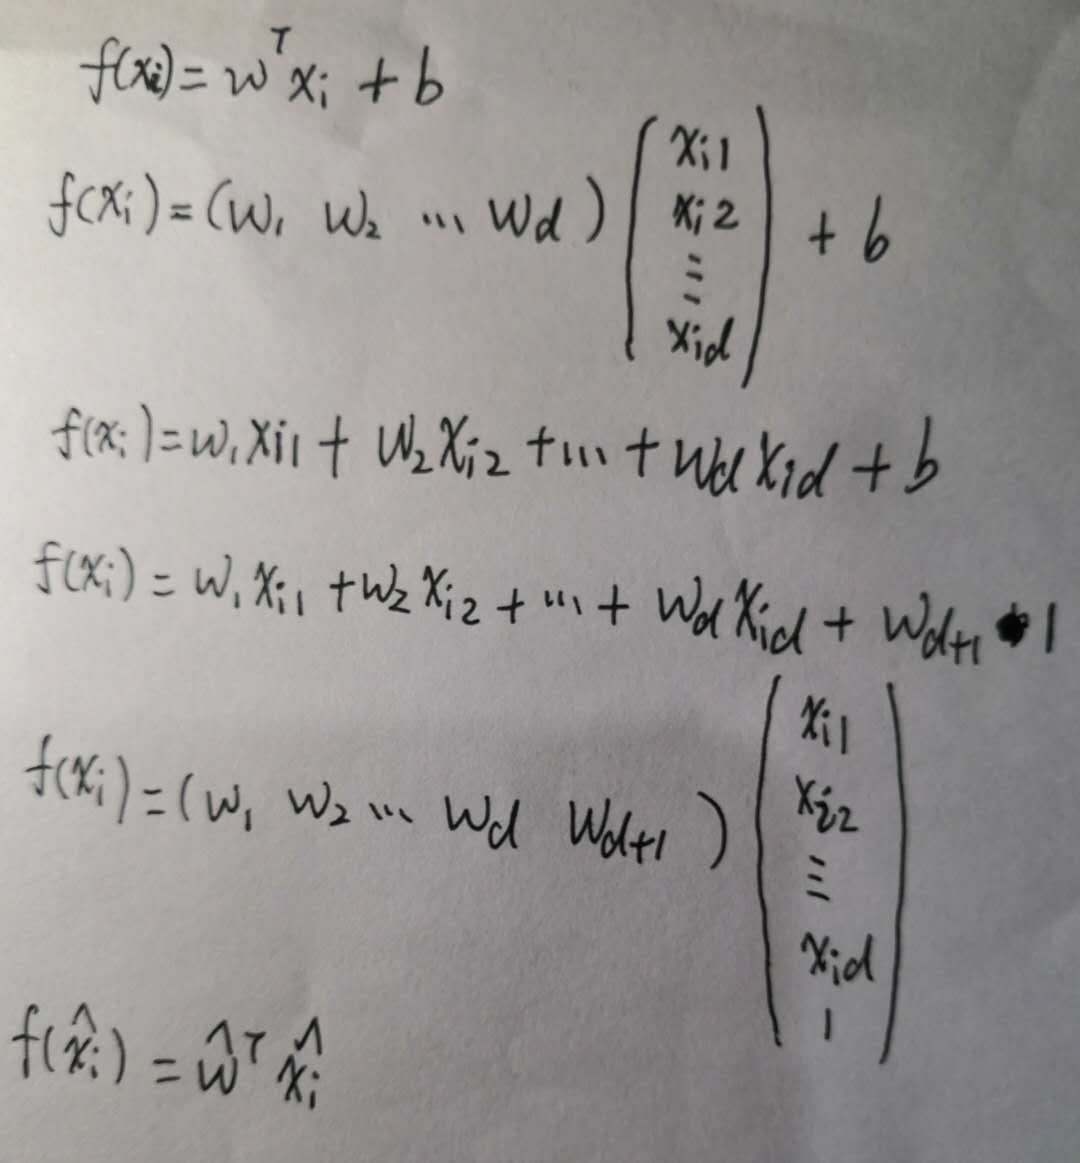 f(xᵢ) = wᵀxᵢ + b
f(xᵢ) = (w₁ w₂ … w_d) (x_{i1} x_{i2} ⋮ x_{id}) + b
f(xᵢ) = w₁x_{i1} + w₂x_{i2} + … + w_d x_{id} + b
f(xᵢ) = w₁x_{i1} + w₂x_{i2} + … + w_d x_{id} + w_{d+1} · 1
f(xᵢ) = (w₁ w₂ … w_d w_{d+1}) (x_{i1} x_{i2} ⋮ x_{id} 1)
f(x̂ᵢ) = ŵᵀx̂ᵢ